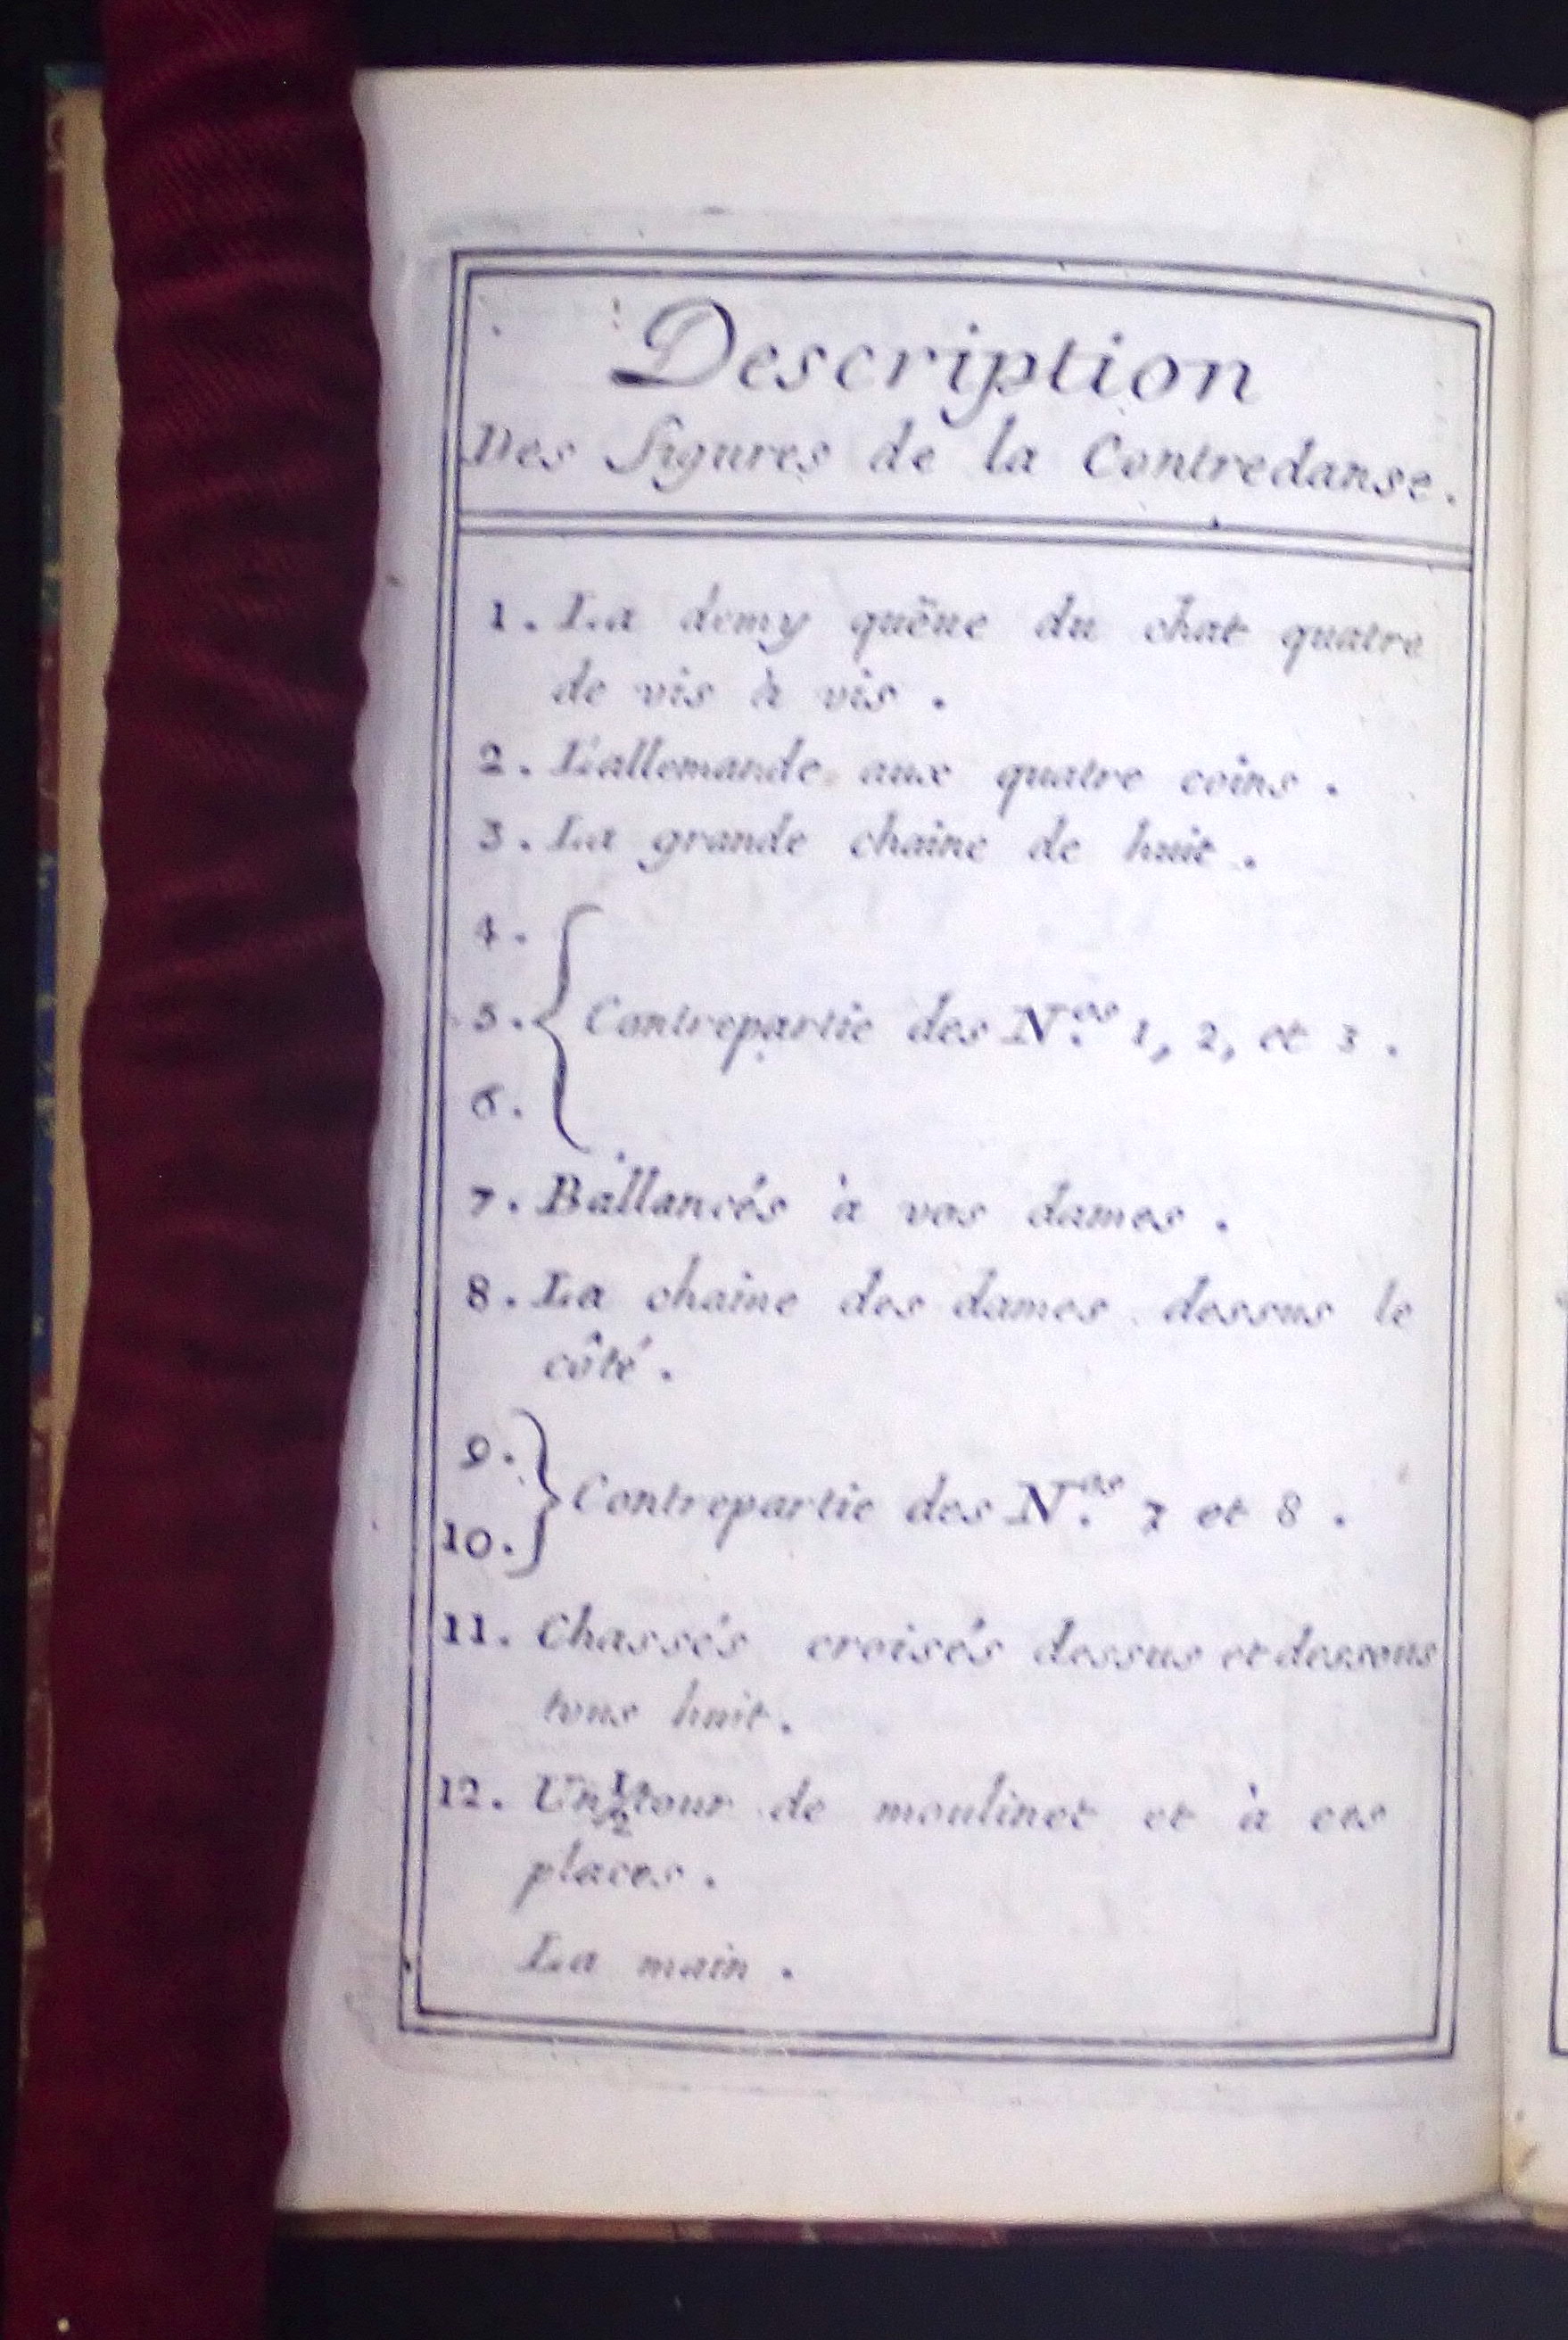 Description
Des figures de la Contredanse.
1. La demy quëue du chat quatre
de vis à vis.
2. L'allemande aux quatre coins.
3. La grande chaîne de huit.
4.
5. { Contrepartie des N.os 1, 2, et 3.
6.
7. Ballancés à vos dames.
8. La chaîne des dames dessus le
côté.
9.
} Contrepartie des N.os 7 et 8.
10.
11. Chassés croisés dessus et dessous
tous huit.
12. Un 1/2 tour de moulinet et à ces
places.
La main.